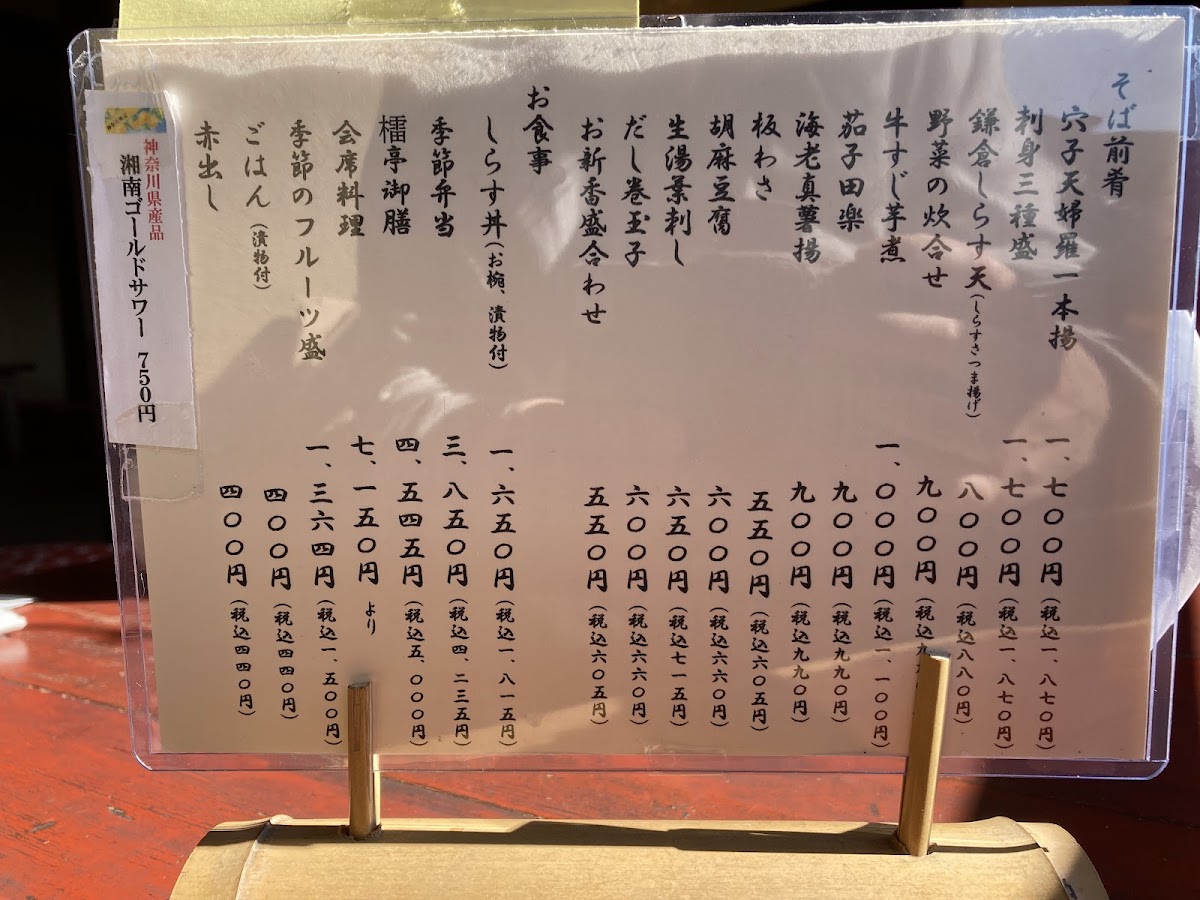 そば前肴
穴子天婦羅一本揚 一、七〇〇円(税込一、八七〇円)
刺身三種盛 一、七〇〇円(税込一、八七〇円)
鎌倉しらす天(しらすさつま揚げ) 八〇〇円(税込八八〇円)
野菜の炊合せ 九〇〇円(税込九九
牛すじ芋煮 一、〇〇〇円(税込一、一〇〇円)
茄子田楽 九〇〇円(税込九九〇円)
海老真薯揚 九〇〇円(税込九九〇円)
板わさ 五五〇円(税込六〇五円)
胡麻豆腐 六〇〇円(税込六六〇円)
生湯葉刺し 六五〇円(税込七一五円)
だし巻玉子 六〇〇円(税込六六〇円)
お新香盛合わせ 五五〇円(税込六〇五円)
お食事
しらす丼(お椀、漬物付) 一、六五〇円(税込一、八一五円)
季節弁当 三、八五〇円(税込四、二三五円)
櫺亭御膳 四、五四五円(税込五、〇〇〇円)
会席料理 七、一五〇円 より
季節のフルーツ盛 一、三六四円(税込一、五〇〇円)
ごはん(漬物付) 四〇〇円(税込四四〇円)
赤出し 四〇〇円(税込四四〇円)
神奈川県産品
湘南ゴールドサワー 750円